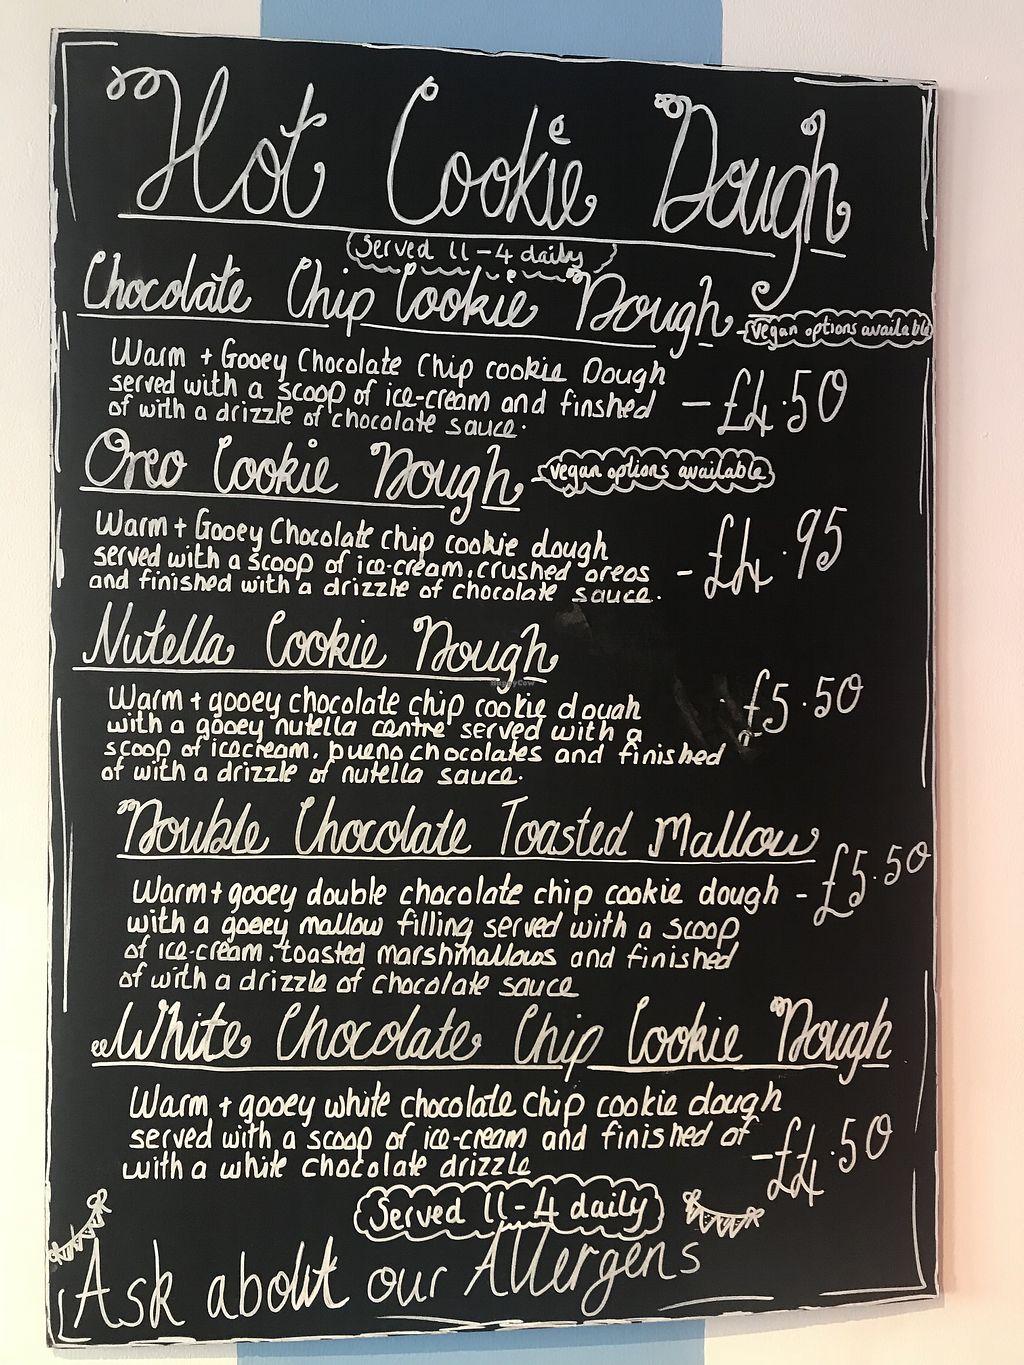 Hot Cookie Dough
Served 11-4 daily
Chocolate Chip Cookie Dough - vegan options available
Warm + Gooey Chocolate Chip cookie Dough
served with a scoop of ice-cream and finshed - £4.50
of with a drizzle of chocolate sauce.
Oreo Cookie Dough - vegan options available
Warm + Gooey Chocolate chip cookie dough
served with a scoop of ice-cream, crushed oreos - £4.95
and finished with a drizzle of chocolate sauce.
Nutella Cookie Dough
Warm + gooey chocolate chip cookie dough - £5.50
with a gooey nutella centre served with a
scoop of icecream, bueno chocolates and finished
of with a drizzle of nutella sauce.
HappyCow
Double Chocolate Toasted Mallow
Warm + gooey double chocolate chip cookie dough - £5.50
with a gooey mallow filling served with a scoop
of ice-cream, toasted marshmallows and finished
of with a drizzle of chocolate sauce
White Chocolate Chip Cookie Dough
Warm + gooey white chocolate chip cookie dough
served with a scoop of ice-cream and finished of - £4.50
with a white chocolate drizzle
Served 11-4 daily
Ask about our Allergens